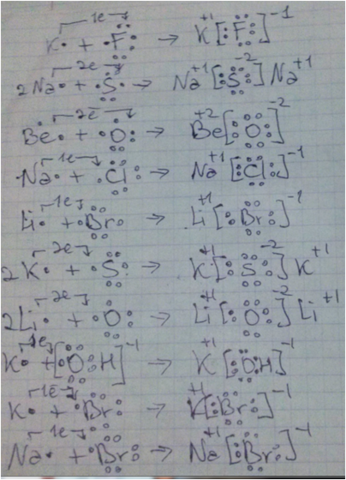 1e
K• + •F: → K⁺¹[:F:]⁻¹
2e
2Na• + •S• → Na⁺¹[:S:]⁻² Na⁺¹
2e
Be• + •O: → Be⁺²[:O:]⁻²
1e
Na• + •Cl: → Na⁺¹[:Cl:]⁻¹
1e
Li• + •Br: → Li⁺¹[:Br:]⁻¹
2e
2K• + •S: → K⁺¹[:S:]⁻² K⁺¹
2e
2Li• + •O: → Li⁺¹[:O:]⁻² Li⁺¹
1e
K• + [:O:H]⁻¹ → K⁺¹[:OH]⁻¹
1e
K• + •Br: → K⁺¹[:Br:]⁻¹
1e
Na• + •Br: → Na⁺¹[:Br:]⁻¹